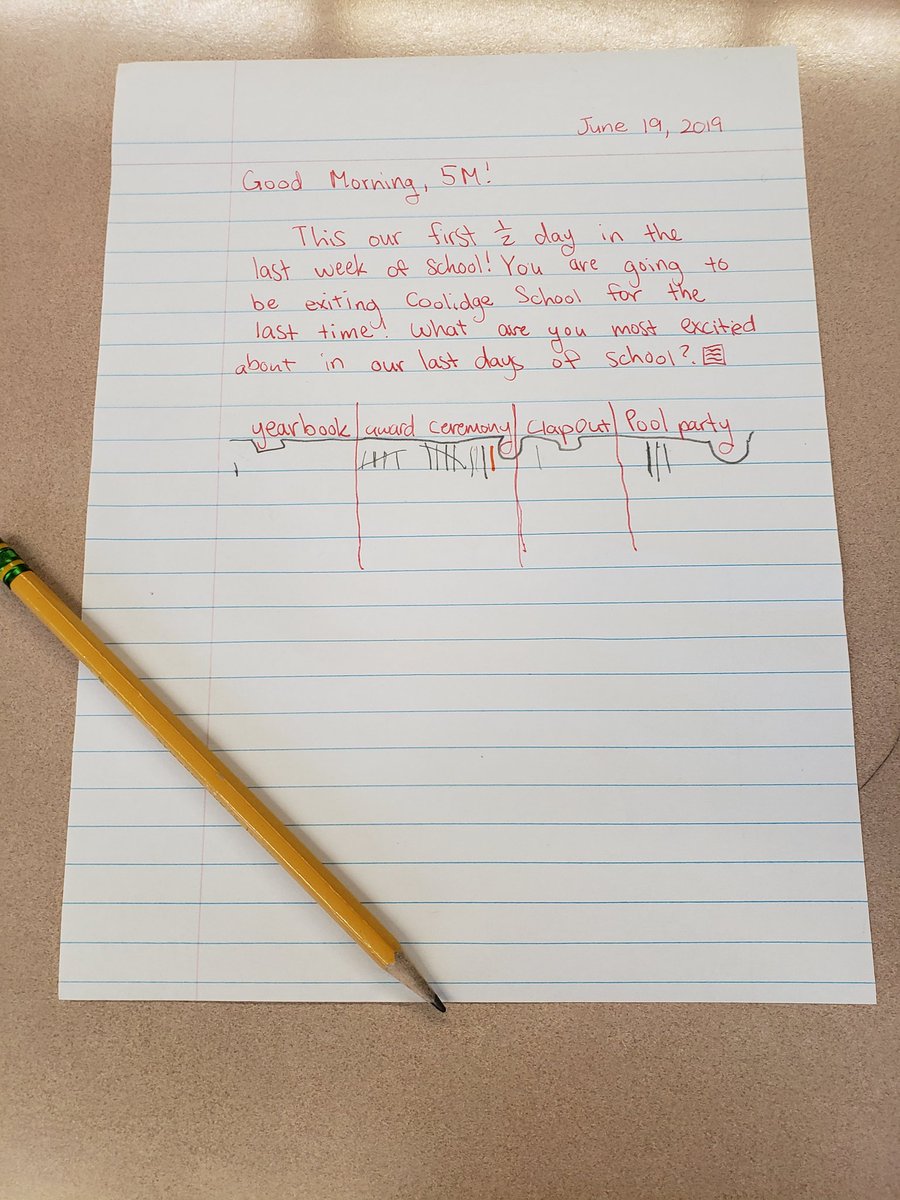 June 19, 2019
Good Morning, 5M!
This our first 1/2 day in the
last week of school! You are going to
be exiting Coolidge School for the
last time! What are you most excited
about in our last days of school?
yearbook award ceremony Clapout Pool party